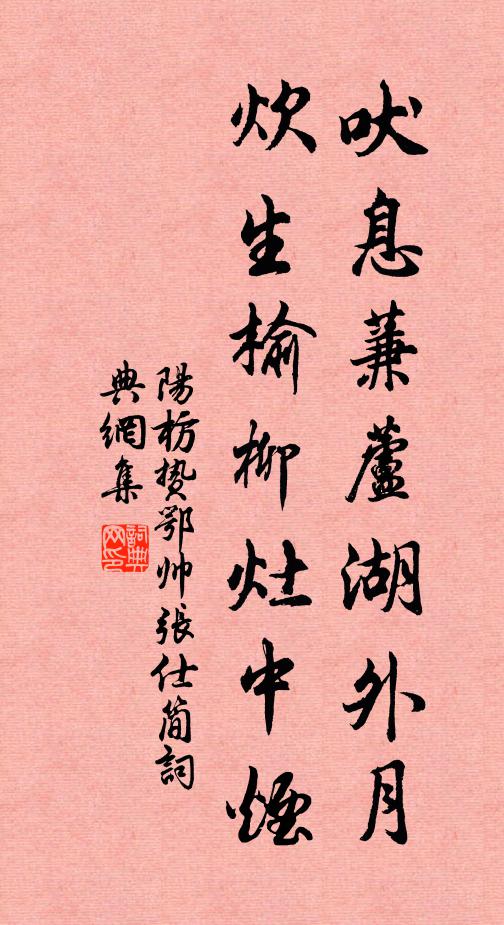 吠息蒹蘆湖外月
炊生榆柳灶中煙
陽枋贽鄂帅張仕簡詞
典網集
詞典网印